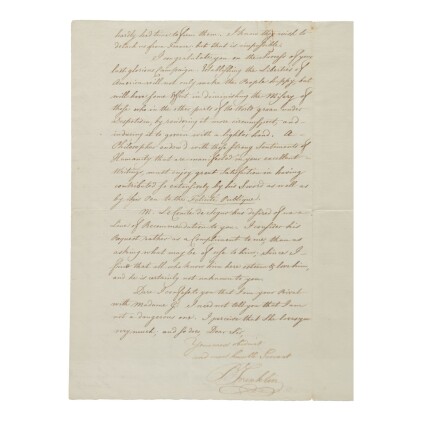 hardly had time to from them. I know they wish to
detach us from France, but that is impossible.
I congratulate you on the Success of your
last glorious Campaign. Establishing the Liberties of
America will not only make the People happy, but
will have some Effect in diminishing the Misery of
those who in the other parts of the World groan under
Despotism, by rendering it more circumspect, and
inducing it to govern with a lighter hand. A
Philosopher endow'd with those strong Sentiments of
Humanity that are manifested in your excellent
Writings, must enjoy great Satisfaction in having
contributed so extensively by his Sword as well as
by his Pen to the Felicité Publique.
M. Le Comte de Segur has desired of me a
Line of Recommendation to you. I consider his
Request rather as a Compliment to me, than as
asking what may be of use to him; since I
find that all who know him here esteem & love him,
and he is certainly not unknown to you.
Dare I confess to you that I am your Rival
with Madame G. I need not tell you that I am
not a dangerous one. I perceive that she loves you
very much; and so does, Dear Sir,
Your most obedient
and most humble Servant
B Franklin